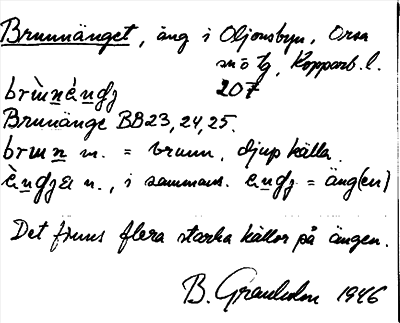 Brunnänget, äng i Oljonsbyn, Orsa
snö tg, Kopparb. l.
207
brùnǹèndʒ
Brunänge BB 23, 24, 25.
brun m. = brunn, djup källa.
èndʒe n., i sammans. endʒ = äng(en)
Det finns flera starka källor på ängen.
B. Granholm 1946